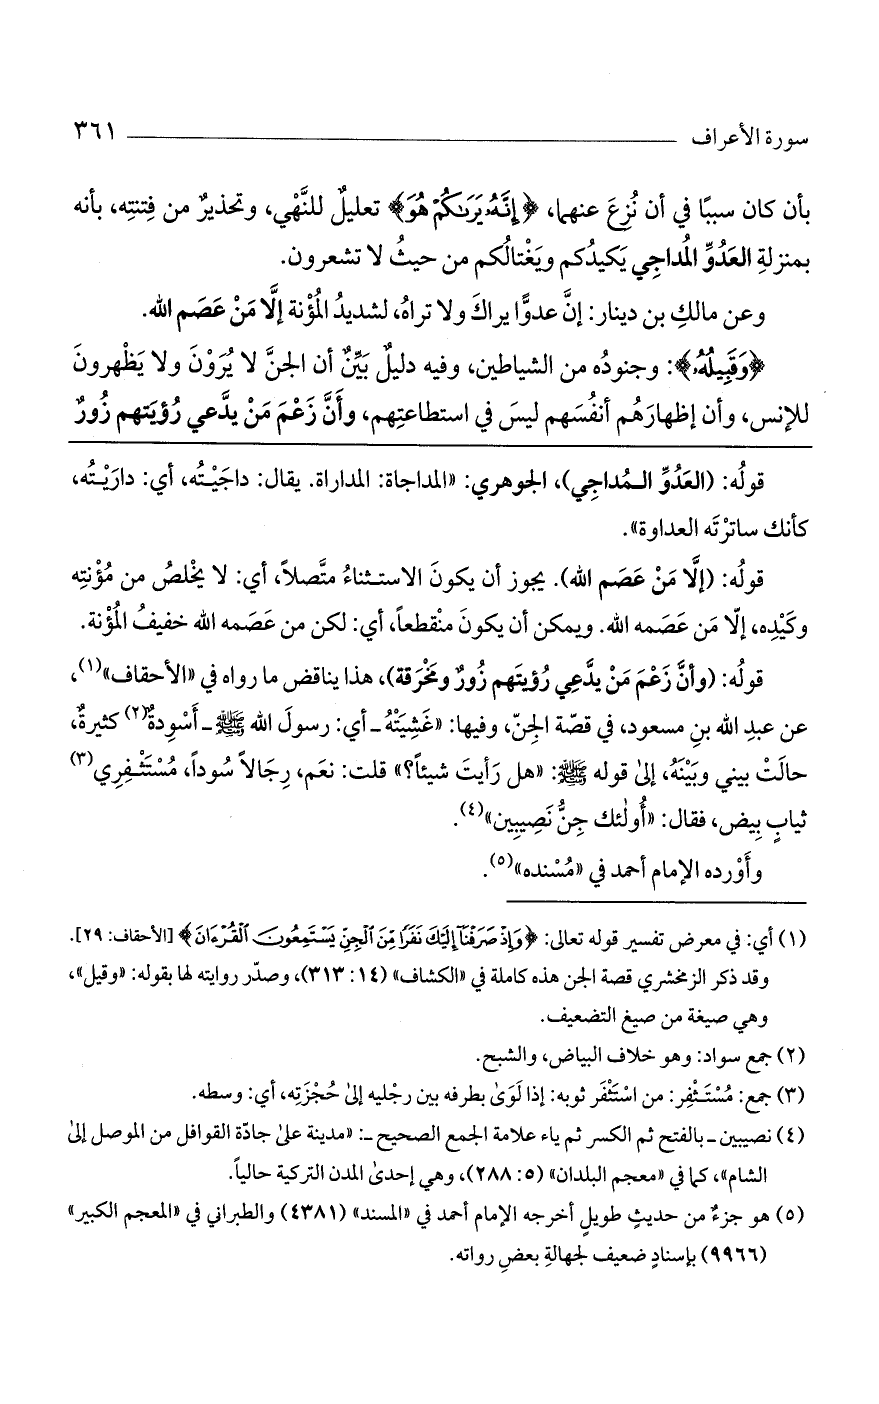 سورة الأعراف ٣٦١
بأن كان سببًا في أن نُزِعَ عنهما، ﴿إِنَّهُۥ يَرَىٰكُمْ هُوَ﴾ تعليلٌ للنَّهْي، وتحذيرٌ من فِتنتِه، بأنه
بمنزلةِ العَدُوِّ المُداجِي يَكيدُكم ويَغْتالُكم من حيثُ لا تشعرون.
وعن مالكِ بن دينار: إنَّ عدوًّا يراكَ ولا تراهُ، لشديدُ المُؤْنة إلَّا مَنْ عَصَم الله.
﴿وَقَبِيلُهُۥ﴾: وجنودُه من الشياطين، وفيه دليلٌ بَيِّنٌ أن الجنَّ لا يُرَوْنَ ولا يَظْهرونَ
للإنس، وأن إظهارَهُم أنفُسَهم ليسَ في استطاعتِهم، وأَنَّ زَعْمَ مَنْ يدَّعي رُؤيَتهم زُورٌ
قولُه: (العَدُوِّ المُداجِي)، الجوهري: «المداجاة: المداراة. يقال: داجَيْتُه، أي: دارَيْتُه،
كأنك ساترْتَه العداوة».
قولُه: (إلَّا مَنْ عَصَم الله). يجوز أن يكونَ الاستثناءُ متَّصلاً، أي: لا يخْلصُ من مُؤْنتِه
وكَيْدِه، إلّا مَن عَصَمه الله. ويمكن أن يكونَ منْقطعاً، أي: لكن من عَصَمه الله خفيفُ المُؤْنة.
قولُه: (وأنَّ زَعْمَ مَنْ يدَّعِي رُؤيتَهم زُورٌ ومَخْرَقة)، هذا يناقض ما رواه في «الأحقاف»(١)،
عن عبدِ الله بنِ مسعود، في قصّة الجِنّ، وفيها: «غَشِيَتْهُ ـ أي: رسولَ الله ﷺ ـ أَسْوِدةٌ(٢) كثيرةٌ،
حالَتْ بيني وبَيْنَهُ، إلىٰ قوله ﷺ: «هل رَأيتَ شيئاً؟» قلت: نعَم، رِجَالاً سُوداً، مُسْتَثْفِري(٣)
ثيابٍ بِيض، فقال: «أُولٰئك جِنُّ نَصِيبِين»(٤).
وأَوْرده الإمام أحمد في «مُسْنده»(٥).
(١) أي: في معرض تفسير قوله تعالى: ﴿وَإِذْ صَرَفْنَآ إِلَيْكَ نَفَرًا مِّنَ ٱلْجِنِّ يَسْتَمِعُونَ ٱلْقُرْءَانَ﴾ [الأحقاف: ٢٩].
وقد ذكر الزمخشري قصة الجن هذه كاملة في «الكشاف» (١٤: ٣١٣)، وصدّر روايته لها بقوله: «وقيل»،
وهي صيغة من صيغ التضعيف.
(٢) جمع سواد: وهو خلاف البياض، والشبح.
(٣) جمع: مُسْتَثْفِر: من اسْتَثْفَر ثوبه: إذا لَوَىٰ بطرفه بين رجْليه إلىٰ حُجْزَتِه، أي: وسطه.
(٤) نصيبين ـ بالفتح ثم الكسر ثم ياء علامة الجمع الصحيح ـ: «مدينة علىٰ جادّة القوافل من الموصل إلىٰ
الشام»، كما في «معجم البلدان» (٥: ٢٨٨)، وهي إحدىٰ المدن التركية حالياً.
(٥) هو جزءٌ من حديثٍ طويلٍ أخرجه الإمام أحمد في «المسند» (٤٣٨١) والطبراني في «المعجم الكبير»
(٩٩٦٦) بإسنادٍ ضعيف لجهالةِ بعضِ رواته.